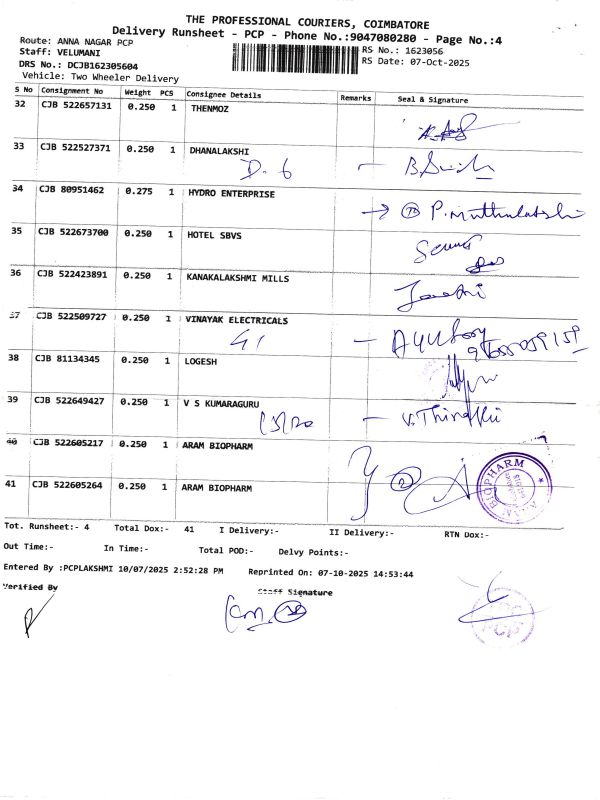 THE PROFESSIONAL COURIERS, COIMBATORE
Delivery Runsheet - PCP - Phone No.:9047080280 - Page No.:4
Route: ANNA NAGAR PCP
RS No.: 1623056
Staff: VELUMANI
RS Date: 07-Oct-2025
DRS No.: DCJB162305604
Vehicle: Two Wheeler Delivery
S No Consignment No Weight PCS Consignee Details Remarks Seal & Signature
32 CJB 522657131 0.250 1 THENMOZ
33 CJB 522527371 0.250 1 DHANALAKSHI
D. 6
34 CJB 80951462 0.275 1 HYDRO ENTERPRISE
P. Muthulakshi
35 CJB 522673700 0.250 1 HOTEL SBVS
36 CJB 522423891 0.250 1 KANAKALAKSHMI MILLS
37 CJB 522509727 0.250 1 VINAYAK ELECTRICALS
38 CJB 81134345 0.250 1 LOGESH
39 CJB 522649427 0.250 1 V S KUMARAGURU
40 CJB 522605217 0.250 1 ARAM BIOPHARM
41 CJB 522605264 0.250 1 ARAM BIOPHARM
BIOPHARM
Tot. Runsheet:- 4 Total Dox:- 41 I Delivery:- II Delivery:- RTN Dox:-
Out Time:- In Time:- Total POD:- Delvy Points:-
Entered By :PCPLAKSHMI 10/07/2025 2:52:28 PM Reprinted On: 07-10-2025 14:53:44
Verified By Staff Signature
PCP